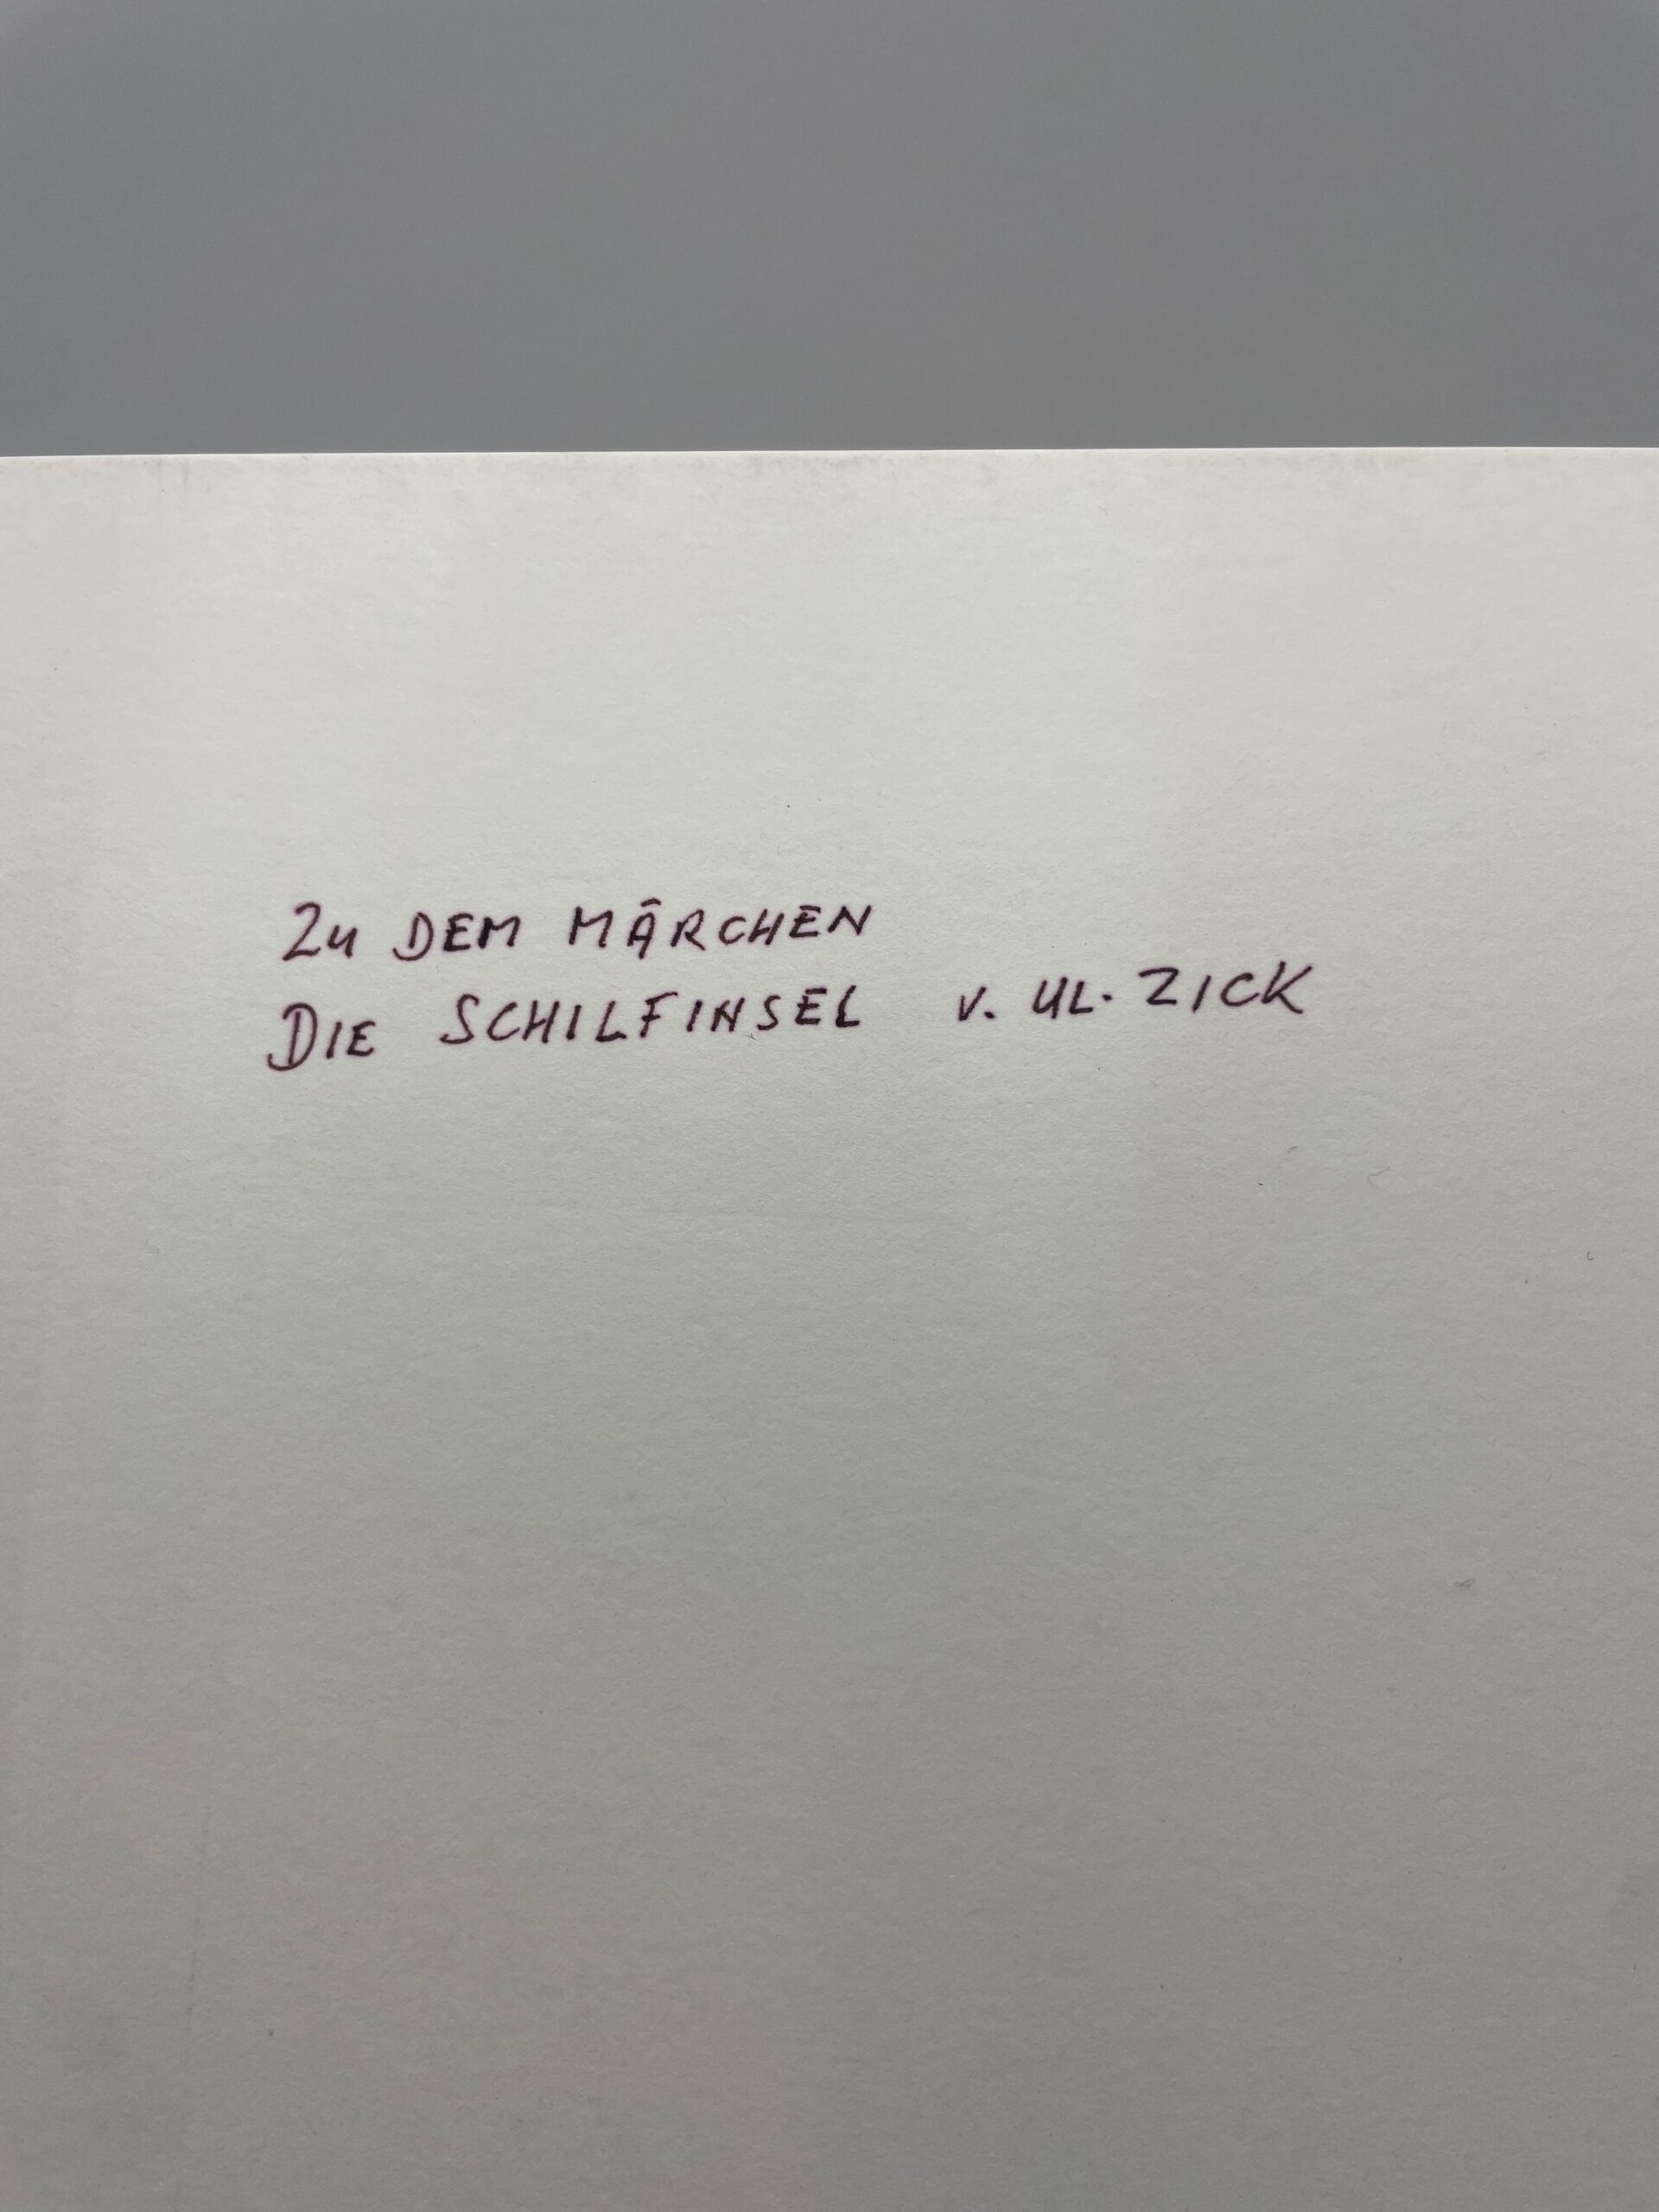 Zu DEM MÄRCHEN
DIE SCHILFINSEL v. UL. ZICK